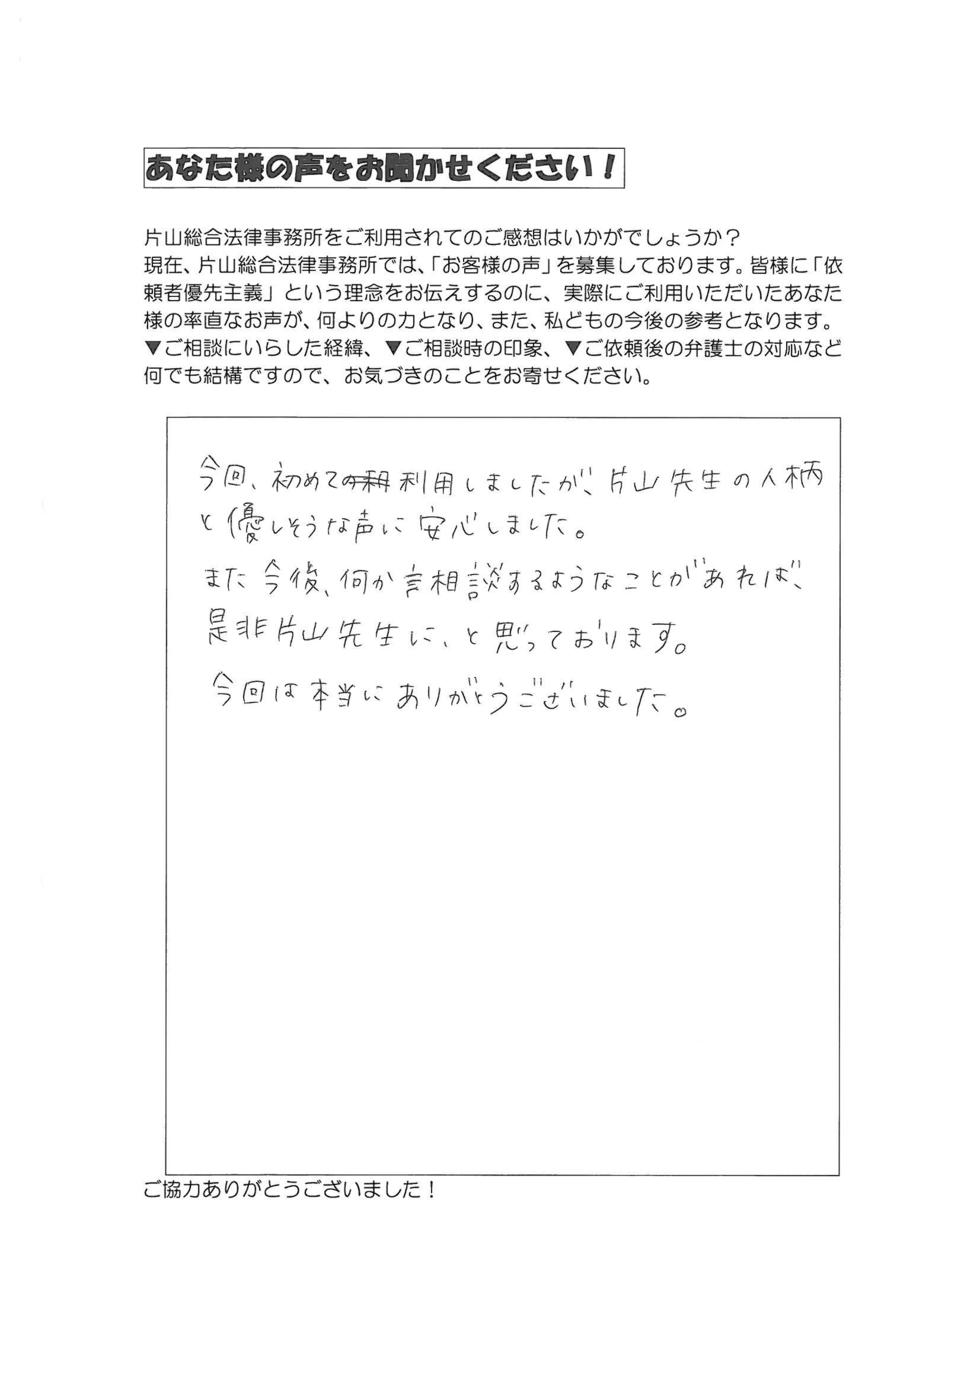 あなた様の声をお聞かせください！
片山総合法律事務所をご利用されてのご感想はいかがでしょうか？
現在、片山総合法律事務所では、「お客様の声」を募集しております。皆様に「依
頼者優先主義」という理念をお伝えするのに、実際にご利用いただいたあなた
様の率直なお声が、何よりの力となり、また、私どもの今後の参考となります。
▼ご相談にいらした経緯、▼ご相談時の印象、▼ご依頼後の弁護士の対応など
何でも結構ですので、お気づきのことをお寄せください。
今回、初めて利用しましたが、片山先生の人柄
と優しそうな声に安心しました。
また今後、何か言相談するようなことがあれば、
是非片山先生に、と思っております。
今回は本当にありがとうございました。
ご協力ありがとうございました！